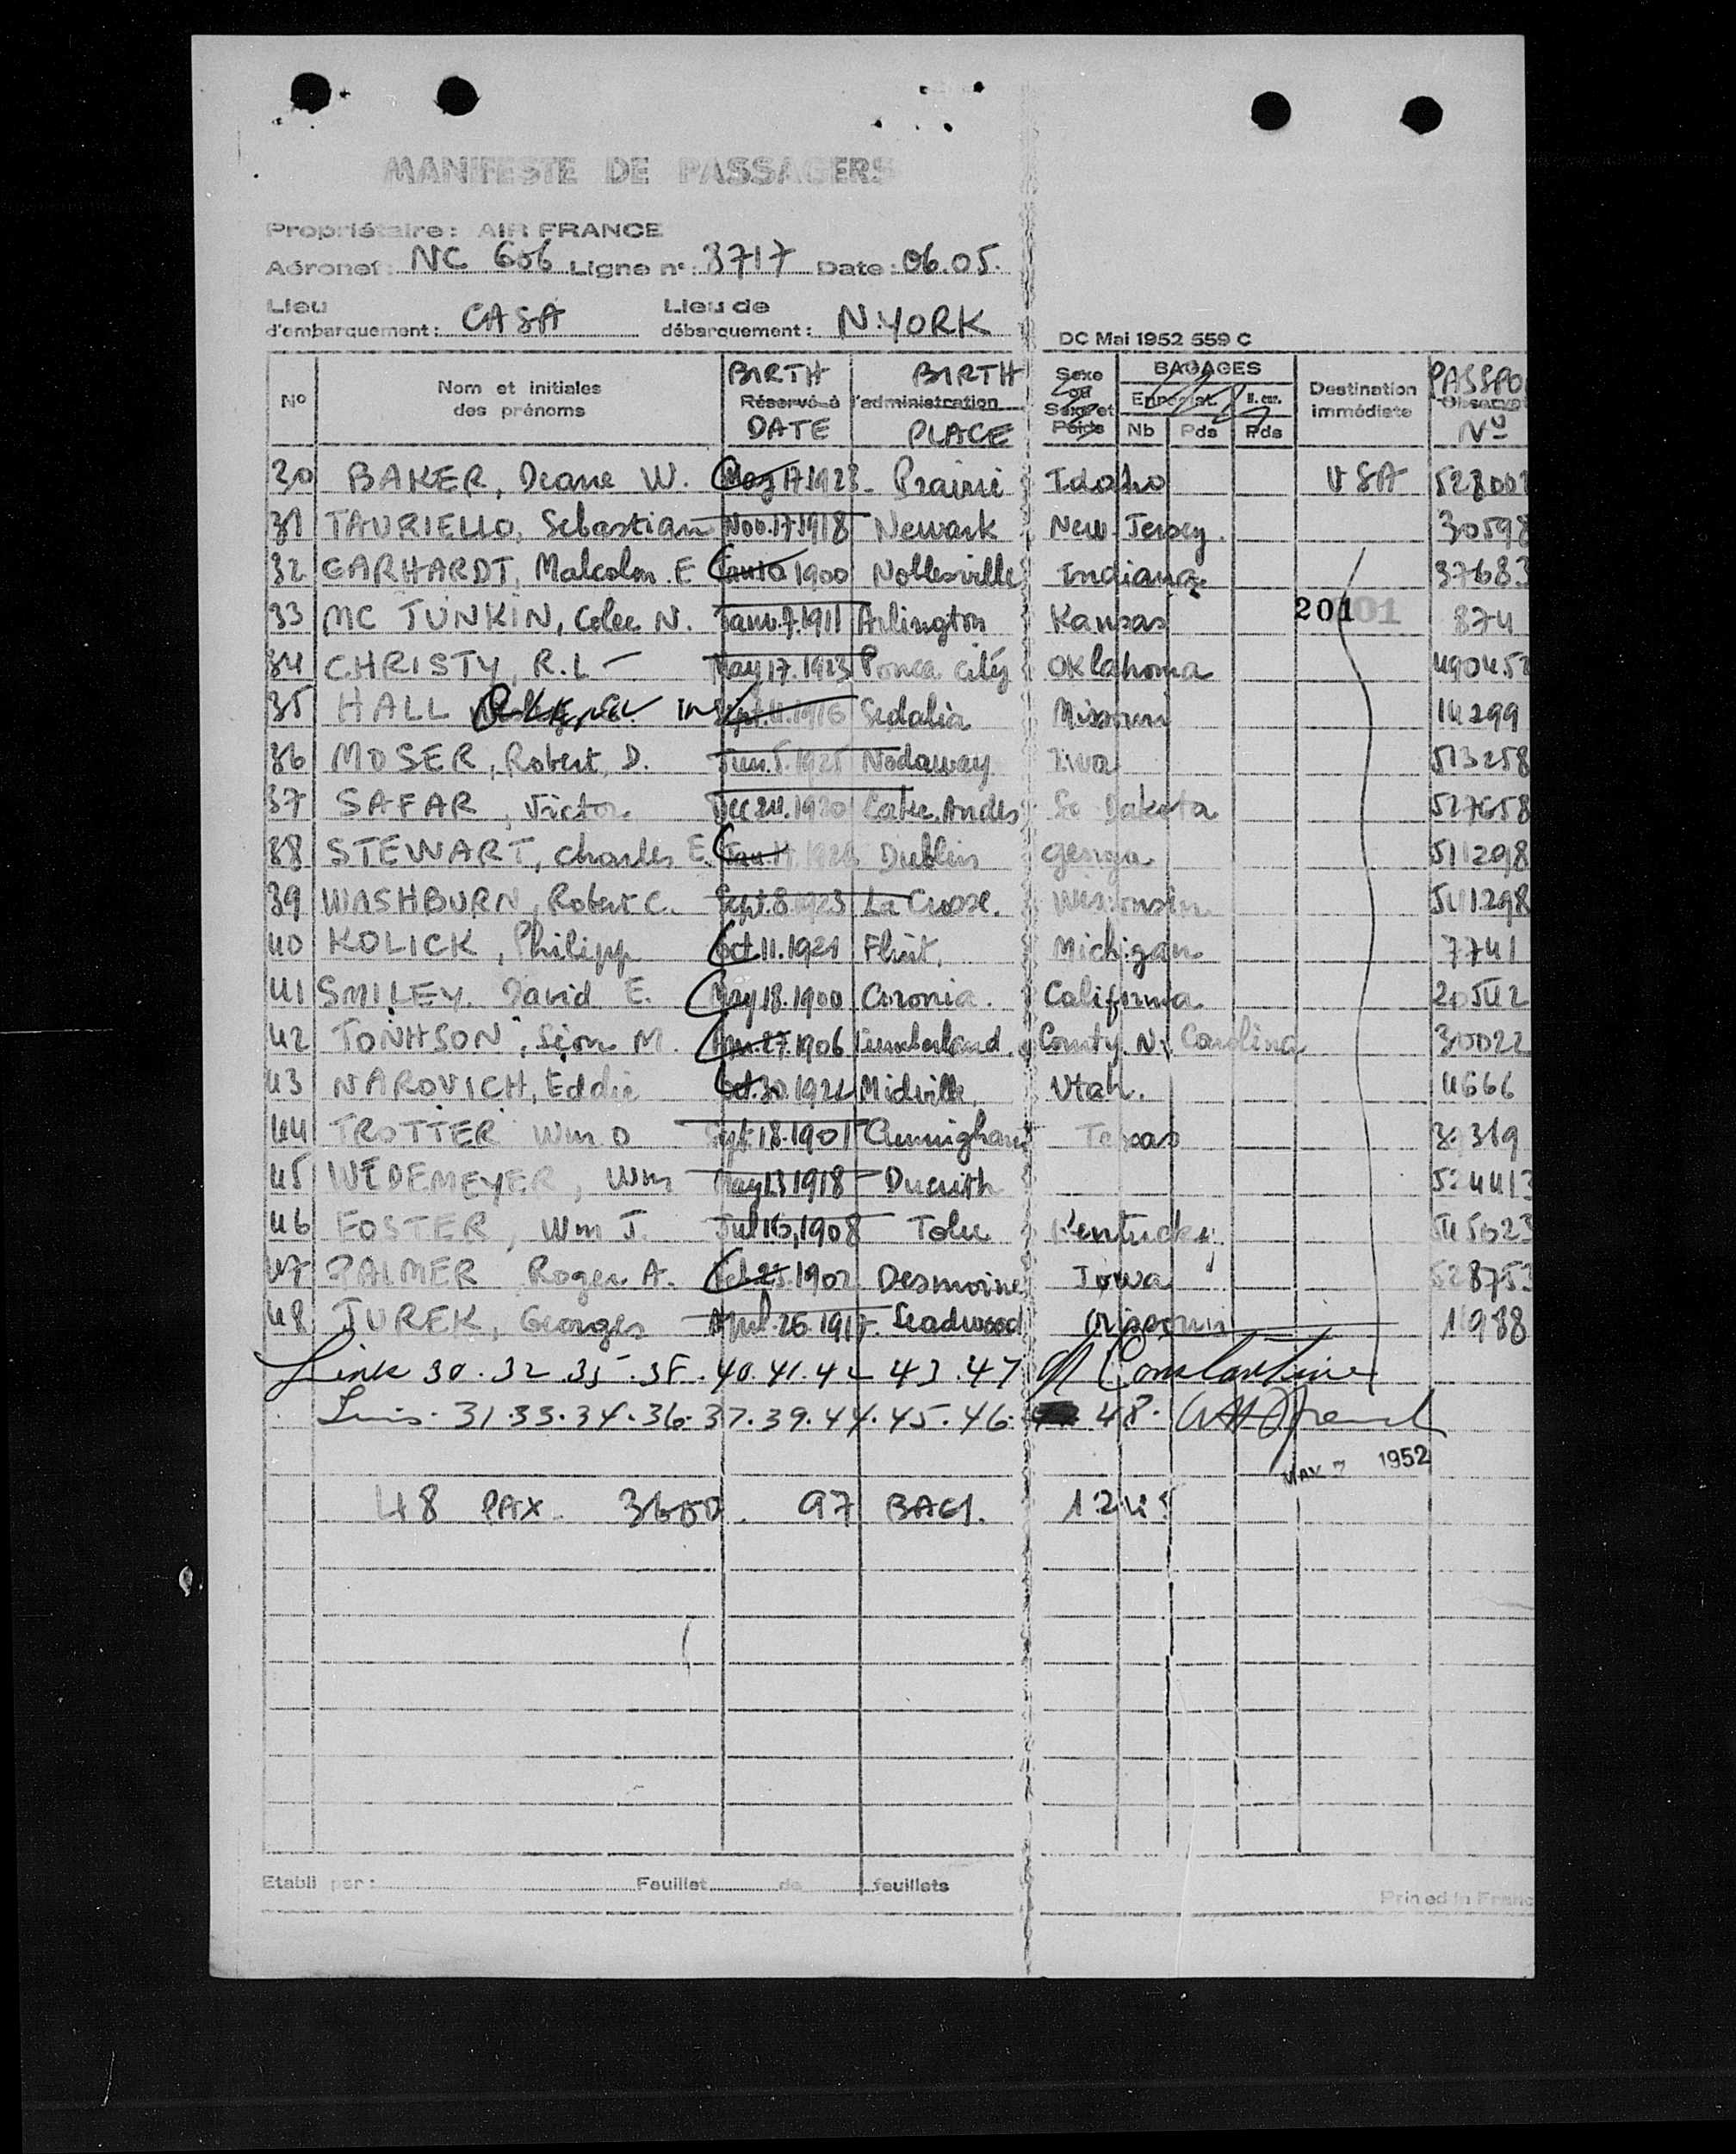 MANIFESTE DE PASSAGERS
Propriétaire: AIR FRANCE
Aéronef: NC 606 Ligne n°: 3717 Date: 06.05.
Lieu d'embarquement: CASA Lieu de débarquement: N.YORK
DC Mai 1952 559 C
N° Nom et initiales des prénoms BIRTH DATE BIRTH PLACE Réservé à l'administration Sexe ou Sexe et Poids BAGAGES Enregist. Nb Pds Pds Destination immédiate PASSPO Observat N°
30 BAKER, Deane W. 17.1923 Prairie Idaho USA 52800
31 TAURIELLO, Sebastian Nov.17.1918 Newark New Jersey. 30598
32 GARHARDT, Malcolm E 1900 Noblesville Indiana 37683
33 MC JUNKIN, Colee N. Janv.7.1911 Arlington Kansas 201 01 874
34 CHRISTY, R.L - May 17.1923 Ponca city Oklahoma 490452
35 HALL Sept.4.1916 Sedalia Missouri 14299
36 MOSER, Robert D. Jun.5.1925 Nodaway Iwa 513258
37 SAFAR, Victor Dec 24.1920 Lake Andes So Dakota 527658
38 STEWART, Charles E. Jan. Dublin Georgia 511298
39 WASHBURN, Robert C. Sept.8.1923 La Crosse. Wisconsin 541298
40 KOLICK, Philipp Oct 11.1921 Flint. Michigan 7741
41 SMILEY. David E. May 18.1900 Coronia. California 20542
42 TONHSON, Sion M. 27.1906 Cumberland. County N. Carolina 30022
43 NAROVICH, Eddie Oct.30.192 Midville, Utah. 4666
44 TROTTER Wm O Sept 18.1901 Cunningham Texas 39319
45 WEDEMEYER, Wm May 13 1918 524413
46 FOSTER, Wm J. Jul 16,1908 Tolu Kentucky 545623
47 PALMER Roger A. Feb 23.1902 Desmoine Iowa 528753
48 JUREK, Georges April.26.1917. Leadwood Missouri 1988
Link 30.32.35.38.40.41.42 43.47 Constantine
31.33.34.36.37.39.44.45.46. 48.
MAY 7 1952
48 PAX. 3600. 97 BAG. 1245
Etabli par: Feuillet de feuillets
Printed in Franc